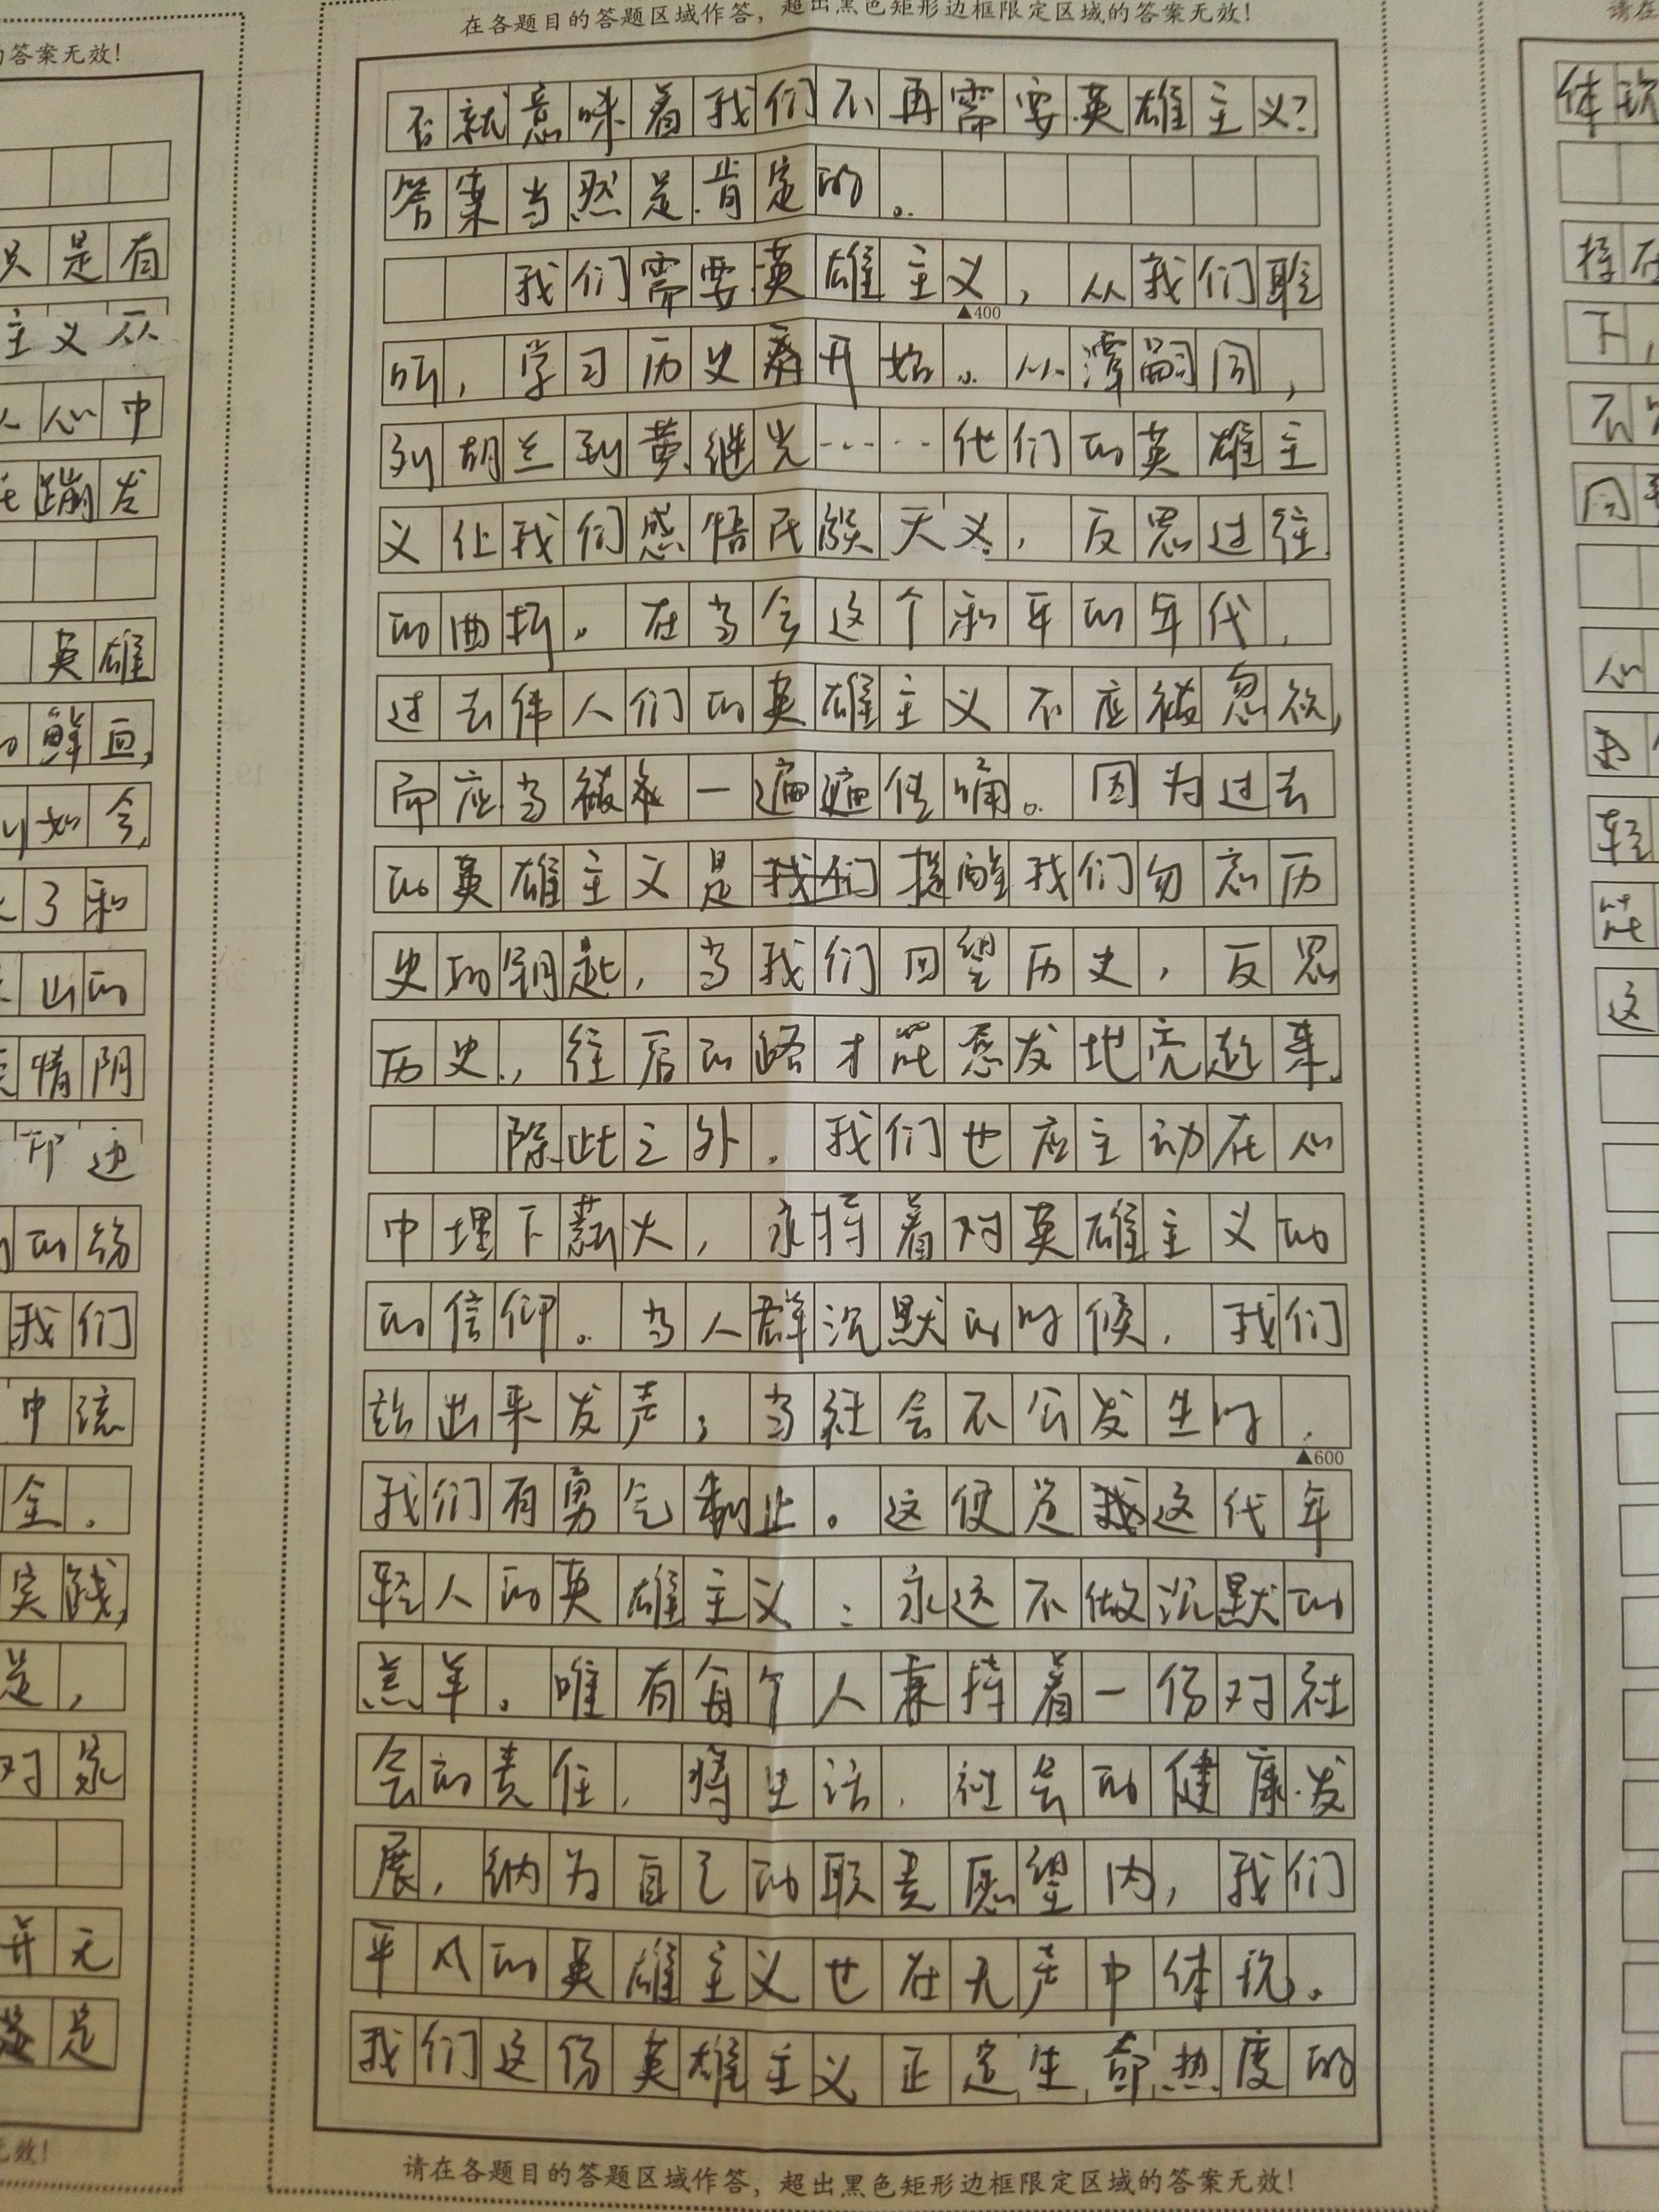 在各题目的答题区域作答，超出黑色矩形边框限定区域的答案无效！
否就意味着我们不再需要英雄主义？
答案当然是肯定的。
我们需要英雄主义，从我们聆
▲400
听，学习历史开始。从潭嗣同，
刘胡兰到黄继光……他们的英雄主
义让我们感悟民族大义，反思过往
的曲折。在当今这个和平的年代，
过去伟人们的英雄主义不应被忽视，
而应当被一遍遍传诵。因为过去
的英雄主义是提醒我们勿忘历
史的钥匙，当我们回望历史，反思
历史，往后的路才能愈发地亮起来。
除此之外，我们也应主动在心
中埋下薪火，永持着对英雄主义的
的信仰。当人群沉默的时候，我们
站出来发声；当社会不公发生时，
▲600
我们有勇气制止。这便是这代年
轻人的英雄主义：永远不做沉默的
羔羊。唯有每个人秉持着一份对社
会的责任，将生活，社会的健康发
展，纳为自己的职责愿望内，我们
平凡的英雄主义也在无声中体现。
我们这份英雄主义正是生命热度的
请在各题目的答题区域作答，超出黑色矩形边框限定区域的答案无效！
的答案无效！
只是有
主义从
心中
蹦发
英雄
鲜血，
如今，
了和
山的
情阴
印迹
我们
中流
金。
实践，
是，
对家
并无
是
无效！
体现
下，
轻
能
这